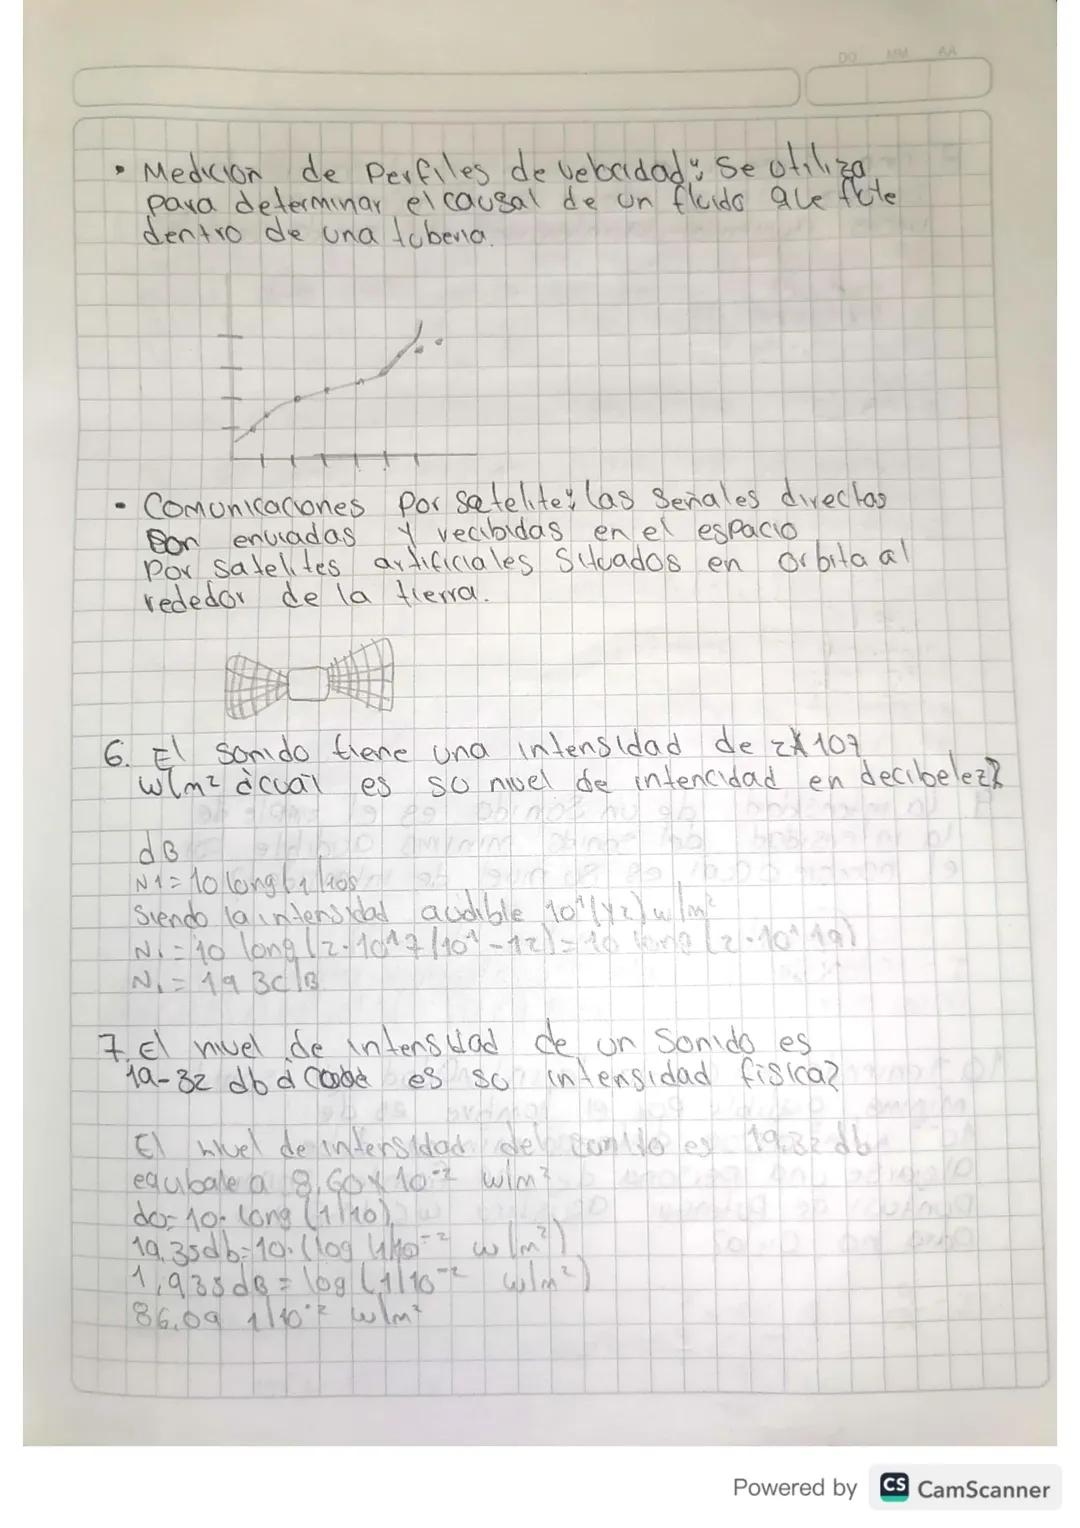 DD MM AA
• Medicion de Perfiles de velocidad: Se utiliza
para determinar el causal de un fluido que
dentro de una tuberia.
• Comunicaciones Por satelite: las señales directas
Son enviadas y recibidas en el espacio
Por satelites artificiales Situados en orbita al
rededor de la tierra.
6. El sonido tiene una intensidad de 2x107
w/m² ¿cual es so nivel de intencidad en decibelez?
dB
N1 = 10 long
Siendo la intensidad audible w/m²
N1 = 10 long (2·10^17/10^1-12) = 10 long (2·10^19)
N1 = 193dB
7. El nivel de intensidad de un Sonido es
19-32 db ¿ es so intensidad fisica?
El nivel de intensidad del sonido es 19.32 db
equbale a 8,60x10-2 w/m²
do= 10· long (1/10)
19.35db=10·(log 1/10-2 w/m²)
1,935dB = log (1/10-2 w/m²)
86.09 1/10-2 w/m²
Powered by CS CamScanner